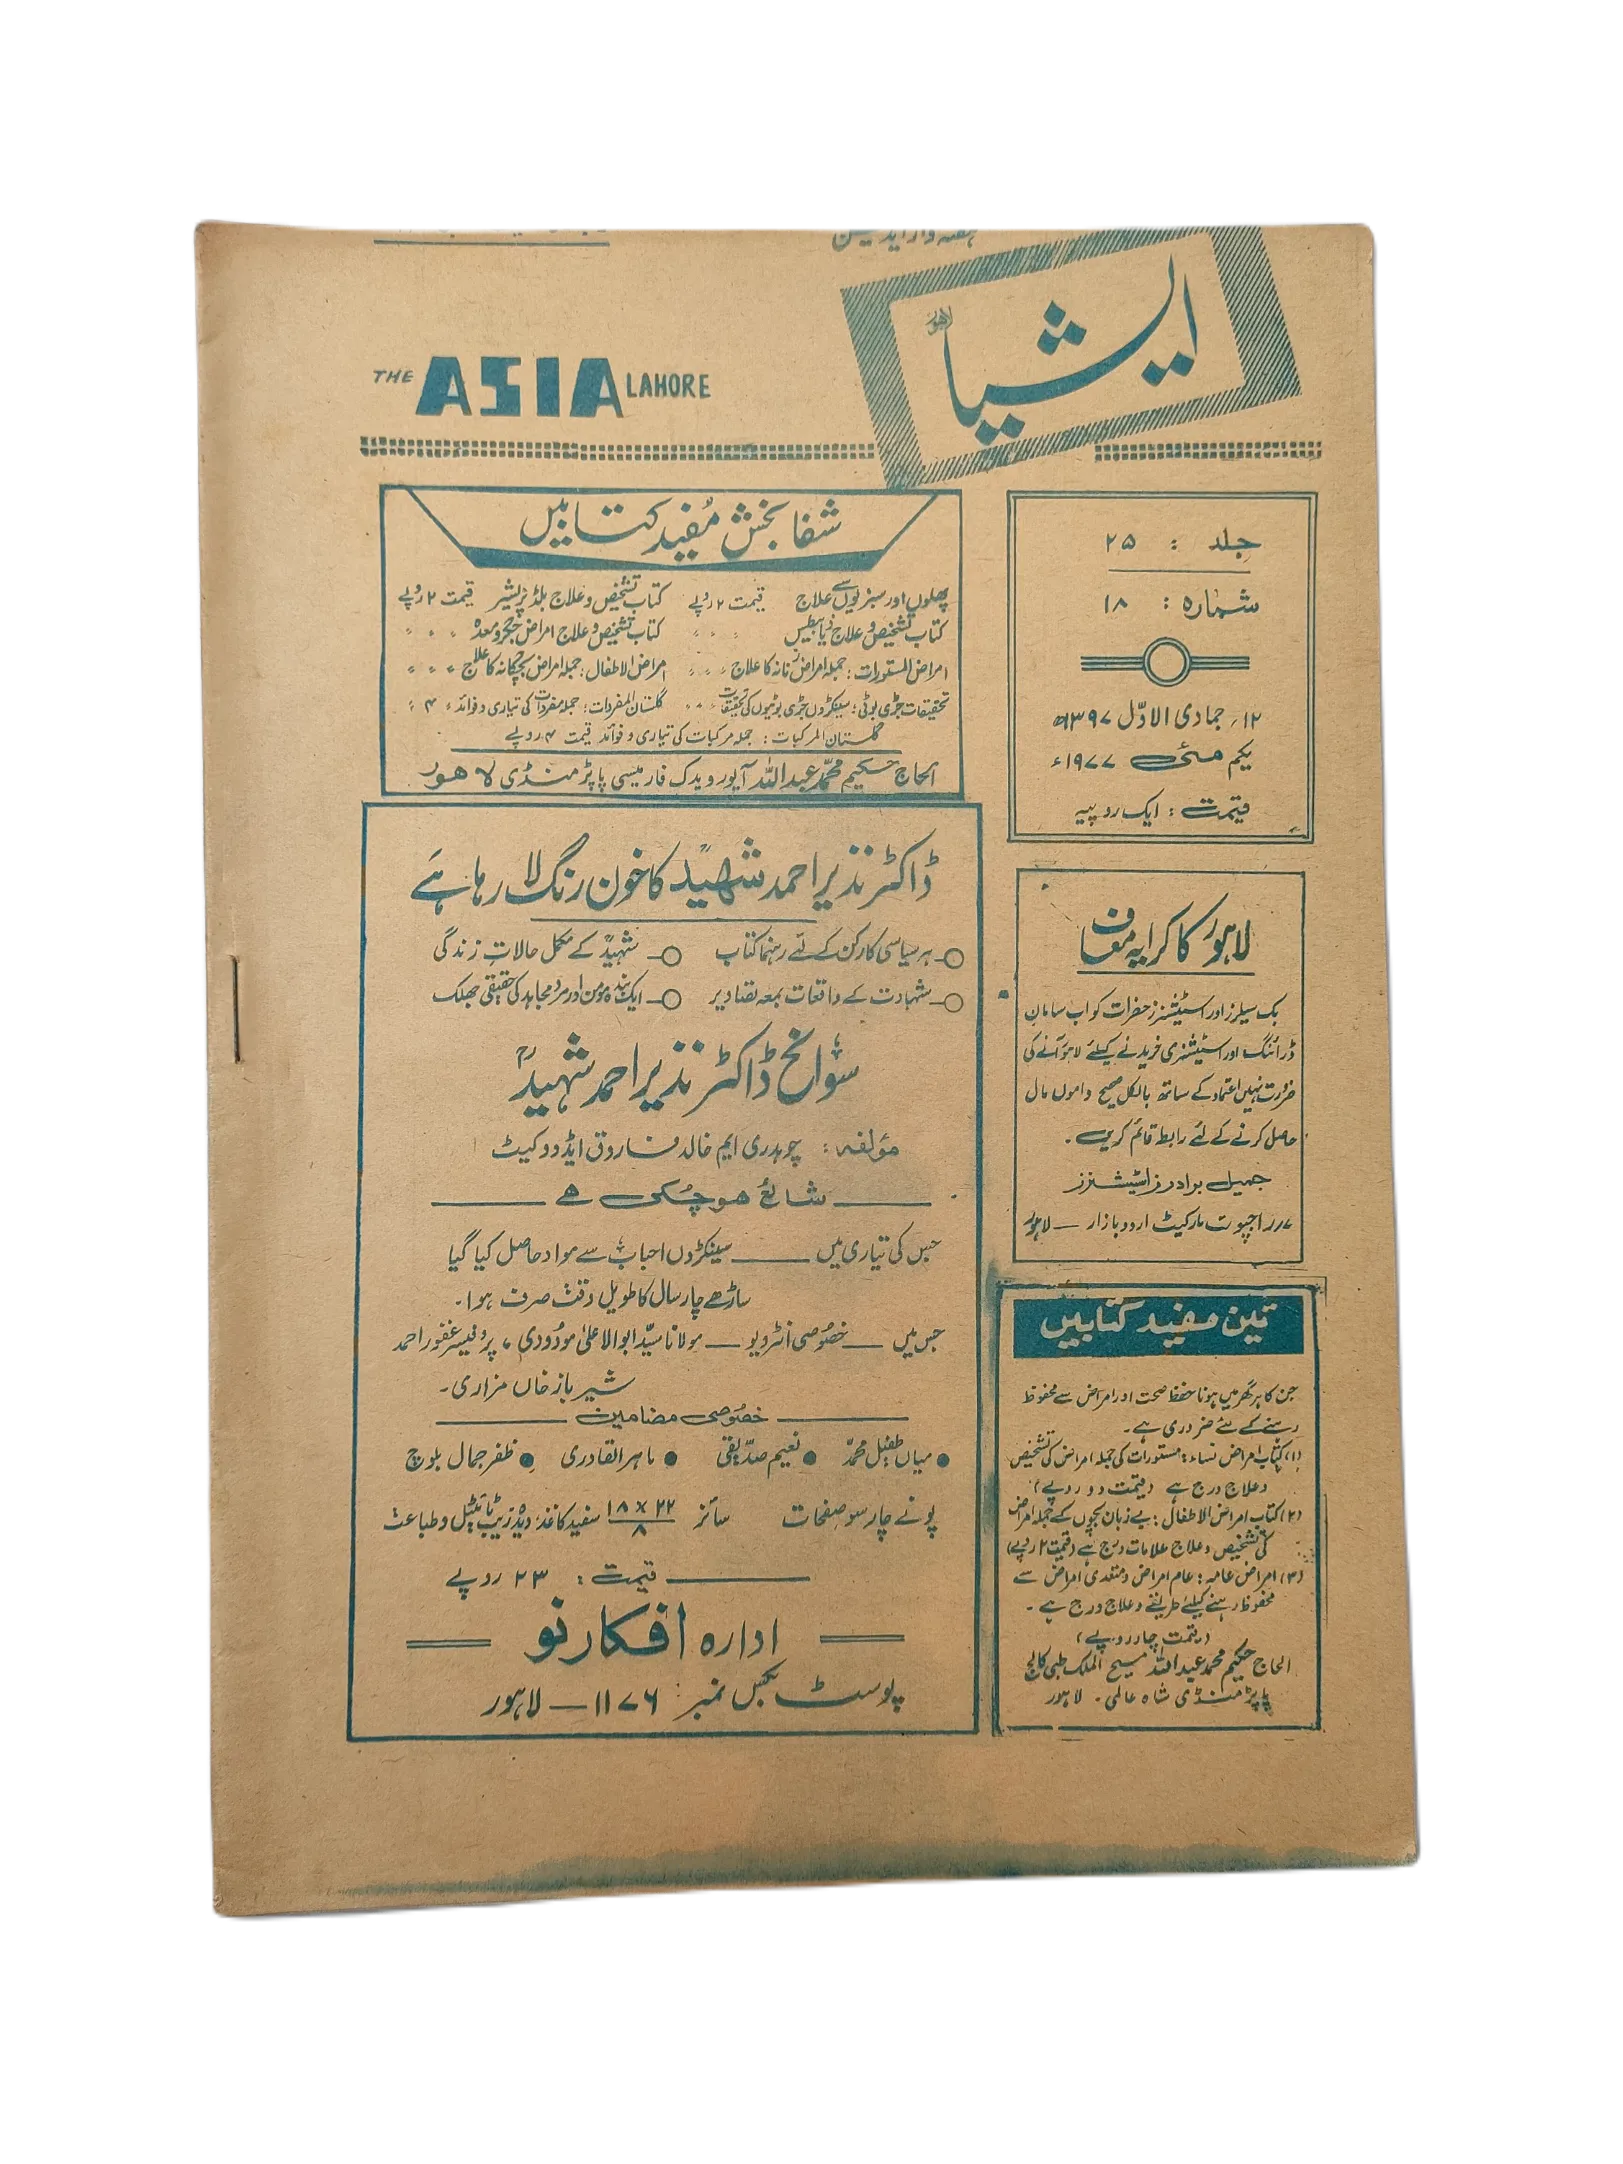 ہفتہ وار ایڈیشن
ایشیا لاہور
THE ASIA LAHORE
جلد : ۲۵
شمارہ : ۱۸
۱۲؍ جمادی الاوّل ۱۳۹۷ھ
یکم مئی ۱۹۷۷ء
قیمت : ایک روپیہ
شفا بخش مفید کتابیں
پھلوں اور سبزیوں سے علاج قیمت ۲ روپے کتاب تشخیص و علاج بلڈ پریشر قیمت ۲ روپے
کتاب تشخیص و علاج ذیابیطس " " " کتاب تشخیص و علاج امراض جگر و معدہ " " "
امراض المستورات : جملہ امراض زنانہ کا علاج " " " امراض الاطفال : جملہ امراض بچگانہ کا علاج " " "
تحقیقات جڑی بوٹی : سینکڑوں جڑی بوٹیوں کی تحقیقات " " " گلستان المفردات : جملہ مفردات کی تیاری و فوائد " ۴ "
گلستان المرکبات : جملہ مرکبات کی تیاری و فوائد قیمت ۴ روپے
الحاج حکیم محمد عبداللہ آیورویدک فارمیسی پاپڑ منڈی لاھور
ڈاکٹر نذیر احمد شہیدؒ کا خون رنگ لا رہا ہے
ہر سیاسی کارکن کے لئے رہنما کتاب
شہیدؒ کے مکمل حالاتِ زندگی
شہادت کے واقعات بمعہ تصاویر
ایک بندہ مومن اور مرد مجاہد کی حقیقی جھلک
سوانح ڈاکٹر نذیر احمد شہیدؒ
مؤلفہ : چوہدری ایم خالد فاروق ایڈووکیٹ
شائع ھو چکی ھے
جس کی تیاری میں — سینکڑوں احباب سے مواد حاصل کیا گیا
ساڑھے چار سال کا طویل وقت صرف ہوا۔
جس میں — خصوصی انٹرویو — مولانا سیّد ابوالاعلیٰ مودودی ، پروفیسر غفور احمد
شیر باز خاں مزاری۔
خصوصی مضامین
● میاں طفیل محمدؒ ● نعیم صدیقی ● ماہر القادری ● ظفر جمال بلوچ
پونے چار سو صفحات سائز ۲۲ × ۱۸ / ۸ سفید کاغذ، دیدہ زیب ٹائیٹل و طباعت
قیمت : ۲۳ روپے
ادارہ افکارِ نو
پوسٹ بکس نمبر : ۱۱۷۶ — لاہور
لاہور کا کرایہ معاف
بک سیلرز اور اسٹیشنرز حضرات کو اب سامان
ڈرائنگ اور اسٹیشنری خریدنے کیلئے لاہور آنے کی
ضرورت نہیں اعتماد کے ساتھ بالکل صحیح داموں مال
حاصل کرنے کے لئے رابطہ قائم کریں۔
جمیل برادرز اسٹیشنرز
۷؍ راجپوت مارکیٹ اردو بازار — لاہور
تین مفید کتابیں
جن کا ہر گھر میں ہونا حفظ صحت اور امراض سے محفوظ
رہنے کے لئے ضروری ہے۔
(۱) کتاب امراض نساء : مستورات کی جملہ امراض کی تشخیص
و علاج درج ہے (قیمت دو روپے)
(۲) کتاب امراض الاطفال : بے زبان بچوں کے جملہ امراض
کی تشخیص و علاج علامات درج ہے (قیمت ۲ روپے)
(۳) امراض عامہ : عام امراض و متعدی امراض سے
محفوظ رہنے کیلئے طریقے و علاج درج ہے۔
(قیمت چار روپے)
الحاج حکیم محمد عبداللہ مسیح الملک طبی کالج
پاپڑ منڈی شاہ عالمی۔ لاہور